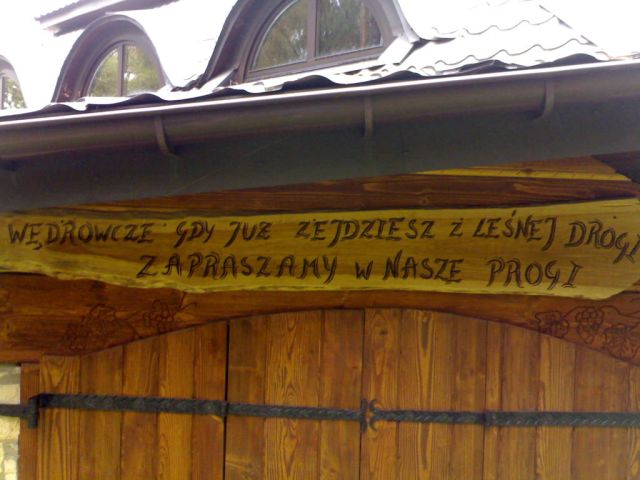 WĘDROWCZE GDY JUŻ ZEJDZIESZ Z LEŚNEJ DROGI
ZAPRASZAMY W NASZE PROGI